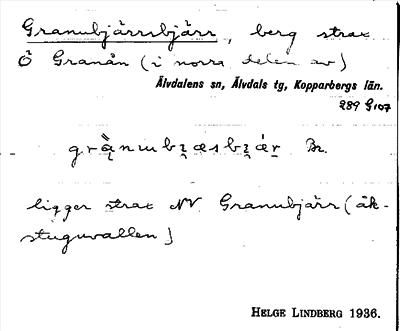 Granubjärrsbjärr, berg strax
Ö Granån (i norra delen av)
Älvdalens sn, Älvdals tg, Kopparbergs län.
289 G 107
grą̀nubʒ̨æsbʒ̨ǽr̨ Br.
ligger strax NV Granubjärr (åk-
stuguvallen)
HELGE LINDBERG 1936.